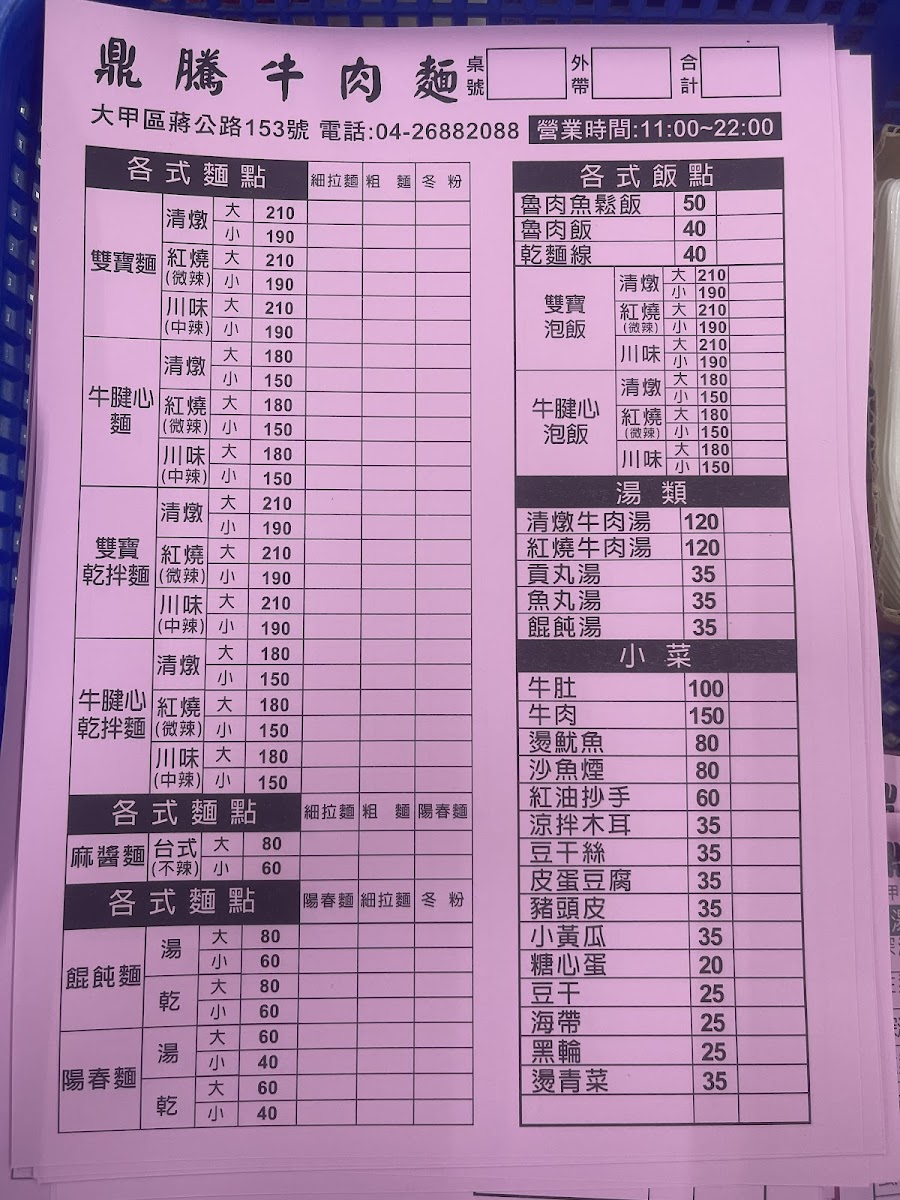 鼎騰牛肉麵 桌號 外帶 合計
大甲區蔣公路153號 電話:04-26882088 營業時間:11:00~22:00
各式麵點 細拉麵 粗麵 冬粉
雙寶麵 清燉 大 210
小 190
紅燒(微辣) 大 210
小 190
川味(中辣) 大 210
小 190
牛腱心麵 清燉 大 180
小 150
紅燒(微辣) 大 180
小 150
川味(中辣) 大 180
小 150
雙寶乾拌麵 清燉 大 210
小 190
紅燒(微辣) 大 210
小 190
川味(中辣) 大 210
小 190
牛腱心乾拌麵 清燉 大 180
小 150
紅燒(微辣) 大 180
小 150
川味(中辣) 大 180
小 150
各式麵點 細拉麵 粗麵 陽春麵
麻醬麵 台式(不辣) 大 80
小 60
各式麵點 陽春麵 細拉麵 冬粉
餛飩麵 湯 大 80
小 60
乾 大 80
小 60
陽春麵 湯 大 60
小 40
乾 大 60
小 40
各式飯點
魯肉魚鬆飯 50
魯肉飯 40
乾麵線 40
雙寶泡飯 清燉 大 210
小 190
紅燒(微辣) 大 210
小 190
川味 大 210
小 190
牛腱心泡飯 清燉 大 180
小 150
紅燒(微辣) 大 180
小 150
川味 大 180
小 150
湯類
清燉牛肉湯 120
紅燒牛肉湯 120
貢丸湯 35
魚丸湯 35
餛飩湯 35
小菜
牛肚 100
牛肉 150
燙魷魚 80
沙魚煙 80
紅油抄手 60
涼拌木耳 35
豆干絲 35
皮蛋豆腐 35
豬頭皮 35
小黃瓜 35
糖心蛋 20
豆干 25
海帶 25
黑輪 25
燙青菜 35